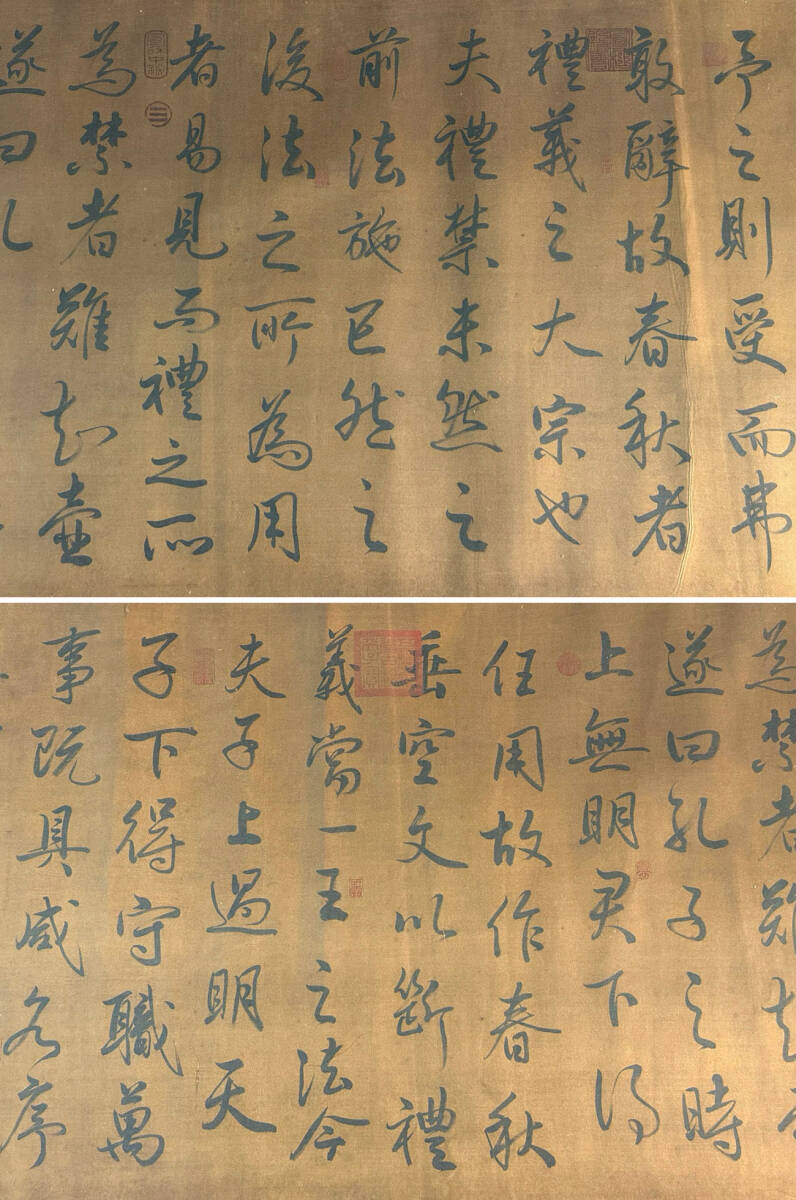 予之則受而弗
敢辭故春秋者
禮義之大宗也
夫禮禁未然之
前法施已然之
後法之所為用
者易見而禮之所
為禁者難知壺
遂曰孔
為禁者難知
遂曰孔子之時
上無明君下得
任用故作春秋
垂空文以斷禮
義當一王之法今
夫子上遇明天
子下得守職萬
事既具咸各序